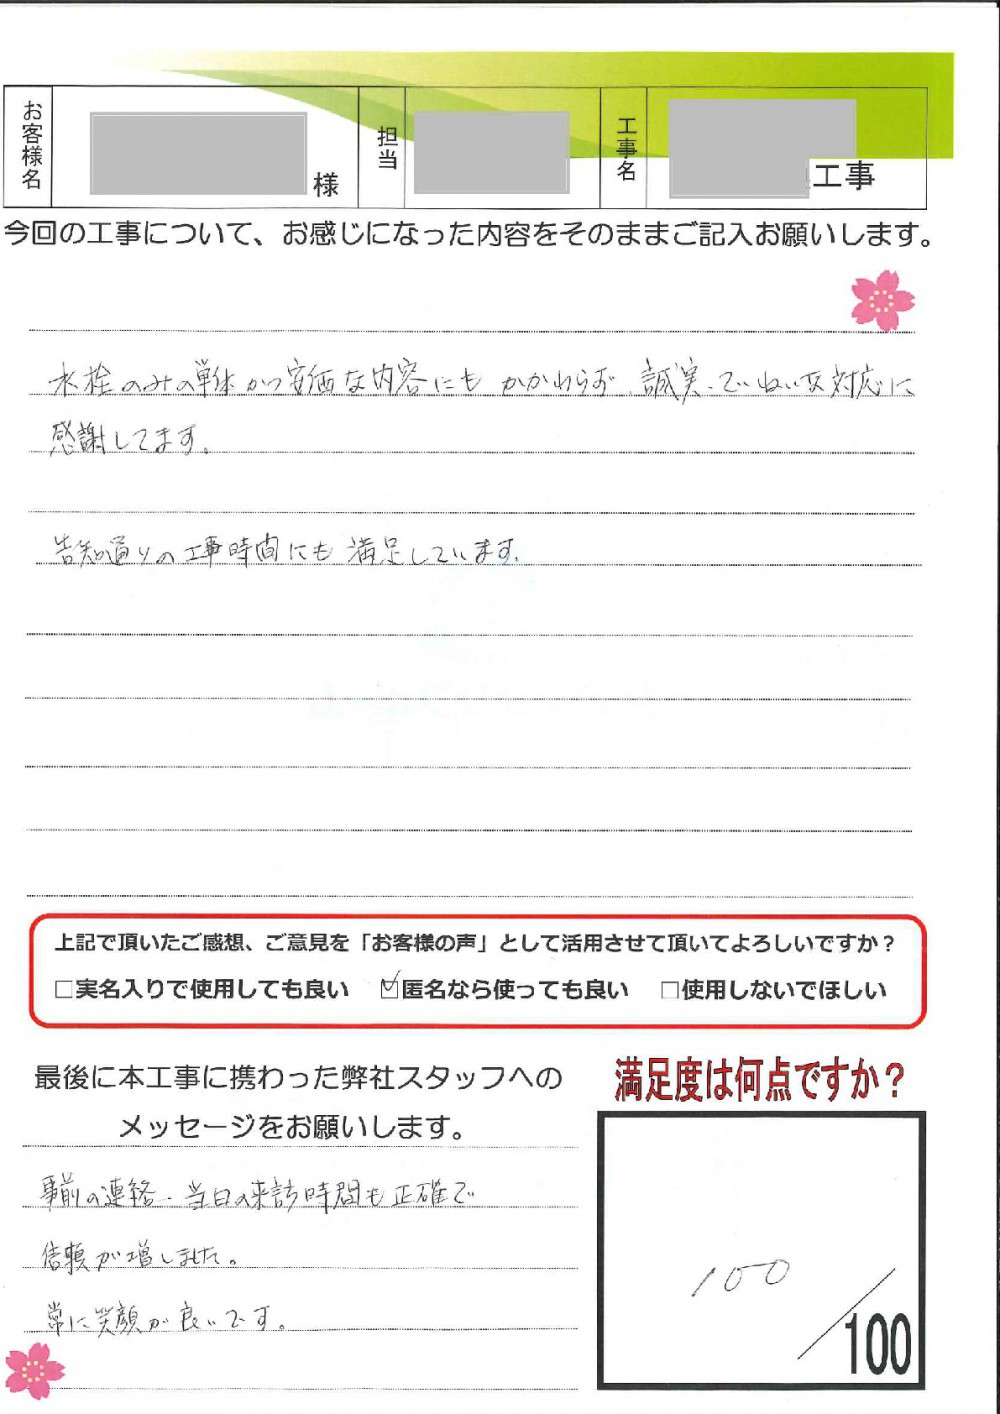 お客様名
様
担当
工事名
工事
今回の工事について、お感じになった内容をそのままご記入お願いします。
水栓のみの単体かつ安価な内容にもかかわらず、誠実・ていねいな対応に
感謝してます。
告知通りの工事時間にも満足しています。
上記で頂いたご感想、ご意見を「お客様の声」として活用させて頂いてよろしいですか？
□実名入りで使用しても良い ☑匿名なら使っても良い □使用しないでほしい
最後に本工事に携わった弊社スタッフへの
メッセージをお願いします。
事前の連絡・当日の来訪時間も正確で
信頼が増しました。
常に笑顔が良いです。
満足度は何点ですか？
100／100